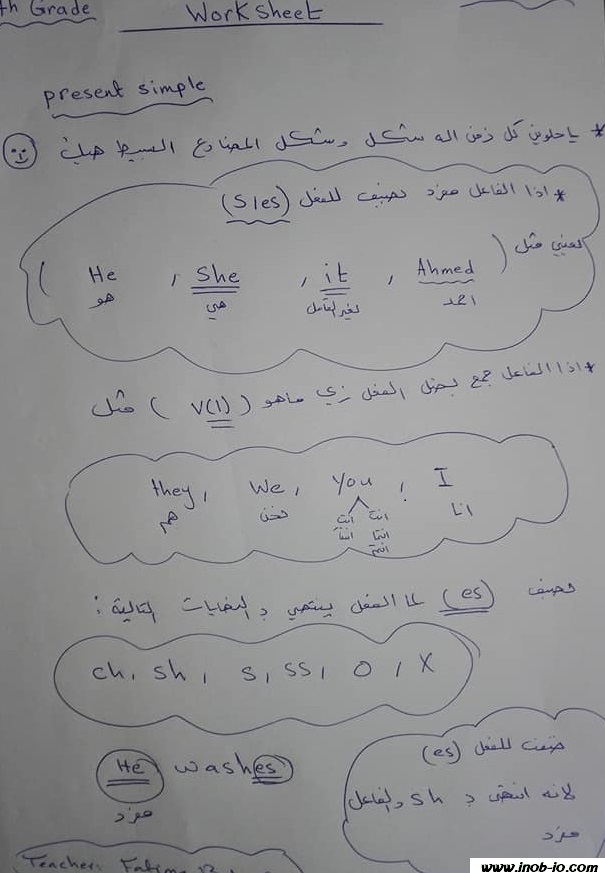 th Grade
Worksheet
present simple
* يا حلوين كل زمن اله شكل وشكل المضارع البسيط هيك
* اذا الفاعل مفرد نضيف للفعل (s/es)
يعني مثل ( Ahmed , it , She , He )
احمد لغير العاقل هي هو
* اذا الفاعل جمع بضل الفعل زي ماهو ( V(1) ) مثل
they, We, You , I
هم نحن انتَ انتِ انا
انتما
انتم
نضيف (es) لما الفعل ينتهي بـ النهايات التالية :
ch, sh, s, ss, o, x
He washes
مفرد
ضفت للفعل (es)
لانه انتهى بـ sh والفاعل
مفرد
Teacher: Fatima
www.jnob-jo.com